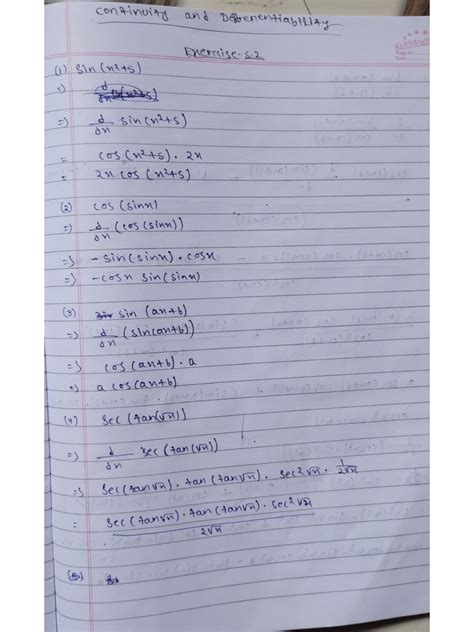 Continuity and Differentiability
Exercise-5.2
(1) sin (x²+5)
=> d/dx sin (x²+5)
= cos (x²+5) · 2x
= 2x cos (x²+5)
(2) cos (sinx)
=> d/dx (cos (sinx))
=> -sin (sinx) · cosx
=> -cosx sin (sinx)
(3) sin (ax+b)
=> d/dx (sin(ax+b))
=> cos (ax+b) · a
=> a cos (ax+b)
(4) sec (tan(√x))
=> d/dx sec (tan(√x))
=> sec (tan√x) · tan (tan√x) · sec²√x · 1/2√x
= sec (tan√x) · tan (tan√x) · sec²√x / 2√x